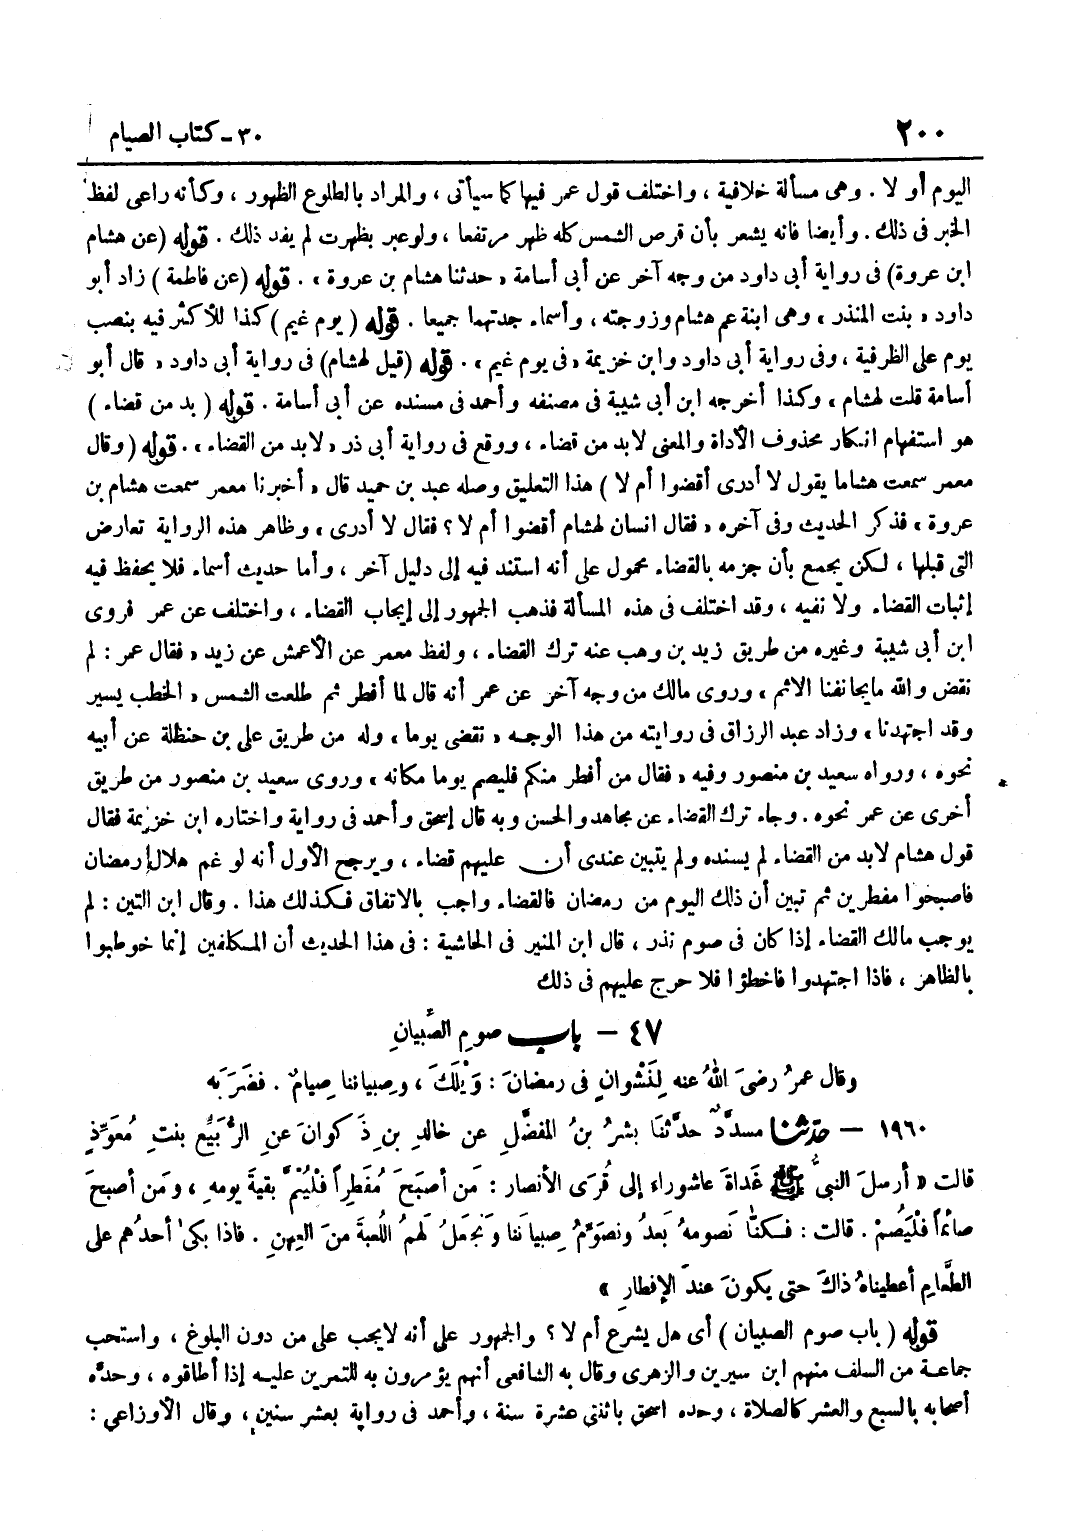 ٢٠٠
٣٠ - كتاب الصيام
اليوم أو لا . وهى مسألة خلافية ، واختلف قول عمر فيها كما سيأتى ، والمراد بالطلوع الظهور ، وكأنه راعى لفظ
الخبر فى ذلك . وأيضا فانه يشعر بأن قرص الشمس كله ظهر مرتفعا ، ولو عبر بظهرت لم يفد ذلك . قوله (عن هشام
ابن عروة) فى رواية أبى داود من وجه آخر عن أبى أسامة « حدثنا هشام بن عروة » . قوله (عن فاطمة) زاد أبو
داود « بنت المنذر » وهى ابنة عم هشام وزوجته ، وأسماء جدتهما جميعا . قوله ( يوم غيم ) كذا للأكثر فيه بنصب
يوم على الظرفية ، وفى رواية أبى داود وابن خزيمة « فى يوم غيم » . قوله (قيل لهشام) فى رواية أبى داود « قال أبو
أسامة قلت لهشام » وكذا أخرجه ابن أبى شيبة فى مصنفه وأحمد فى مسنده عن أبى أسامة . قوله ( بد من قضاء )
هو استفهام انكار محذوف الأداة والمعنى لابد من قضاء ، ووقع فى رواية أبى ذر « لابد من القضاء » . قوله ( وقال
معمر سمعت هشاما يقول لا أدرى أقضوا أم لا ) هذا التعليق وصله عبد بن حميد قال « أخبرنا معمر سمعت هشام بن
عروة » فذكر الحديث وفى آخره « فقال انسان لهشام أقضوا أم لا ؟ فقال لا أدرى » وظاهر هذه الرواية تعارض
التى قبلها ، لكن يجمع بأن جزمه بالقضاء محمول على أنه استند فيه إلى دليل آخر ، وأما حديث أسماء فلا يحفظ فيه
إثبات القضاء ولا نفيه ، وقد اختلف فى هذه المسألة فذهب الجمهور إلى إيجاب القضاء ، واختلف عن عمر فروى
ابن أبى شيبة وغيره من طريق زيد بن وهب عنه ترك القضاء ، ولفظ معمر عن الأعمش عن زيد « فقال عمر : لم
نقض والله مايجانفنا الاثم » وروى مالك من وجه آخر عن عمر أنه قال لما أفطر ثم طلعت الشمس « الخطب يسير
وقد اجتهدنا » وزاد عبد الرزاق فى روايته من هذا الوجه « نقضى يوما » وله من طريق على بن حنظلة عن أبيه
نحوه ، ورواه سعيد بن منصور وفيه « فقال من أفطر منكم فليصم يوما مكانه » وروى سعيد بن منصور من طريق
أخرى عن عمر نحوه . وجاء ترك القضاء عن مجاهد والحسن وبه قال إسحق وأحمد فى رواية واختاره ابن خزيمة فقال
قول هشام لابد من القضاء لم يسنده ولم يتبين عندى أن عليهم قضاء ، ويرجح الأول أنه لو غم هلال رمضان
فاصبحوا مفطرين ثم تبين أن ذلك اليوم من رمضان فالقضاء واجب بالاتفاق فكذلك هذا . وقال ابن التين : لم
يوجب مالك القضاء إذا كان فى صوم نذر ، قال ابن المنير فى الحاشية : فى هذا الحديث أن المكلفين إنما خوطبوا
بالظاهر ، فاذا اجتهدوا فاخطؤا فلا حرج عليهم فى ذلك
٤٧ - باب صومِ الصِّبيانِ
وقال عمرُ رضىَ اللهُ عنه لِنَشْوانٍ فى رمضانَ : وَيْلَكَ ، وصِبياننا صِيامٌ . فضَرَبَه
١٩٦٠ - حدثنا مسدَّدٌ حدَّثنا بشرُ بنُ المفضَّلِ عن خالدِ بنِ ذَكوانَ عنِ الرُّبَيِّع بنتِ مُعوِّذٍ
قالت « أرسلَ النبىُّ ﷺ غَداةَ عاشوراء إلى قُرَى الأنصار : مَن أصبَحَ مُفطِراً فلْيُتمَّ بقيةَ يومهِ ، ومَن أصبحَ
صائماً فلْيَصُمْ . قالت : فكنَّا نَصومهُ بَعدُ ونصوِّمُ صِبياننا ونجعلُ لهمُ اللُّعبةَ منَ العِهنِ . فاذا بكىٰ أحدُهم على
الطَّعامِ أعطيناهُ ذاكَ حتى يكونَ عندَ الإفطارِ »
قوله ( باب صوم الصبيان ) أى هل يشرع أم لا ؟ والجمهور على أنه لايجب على من دون البلوغ ، واستحب
جماعة من السلف منهم ابن سيرين والزهرى وقال به الشافعى أنهم يؤمرون به للتمرين عليه إذا أطاقوه ، وحدَّه
أصحابه بالسبع والعشر كالصلاة ، وحده اسحق باثنتى عشرة سنة ، وأحمد فى رواية بعشر سنين ، وقال الأوزاعي :